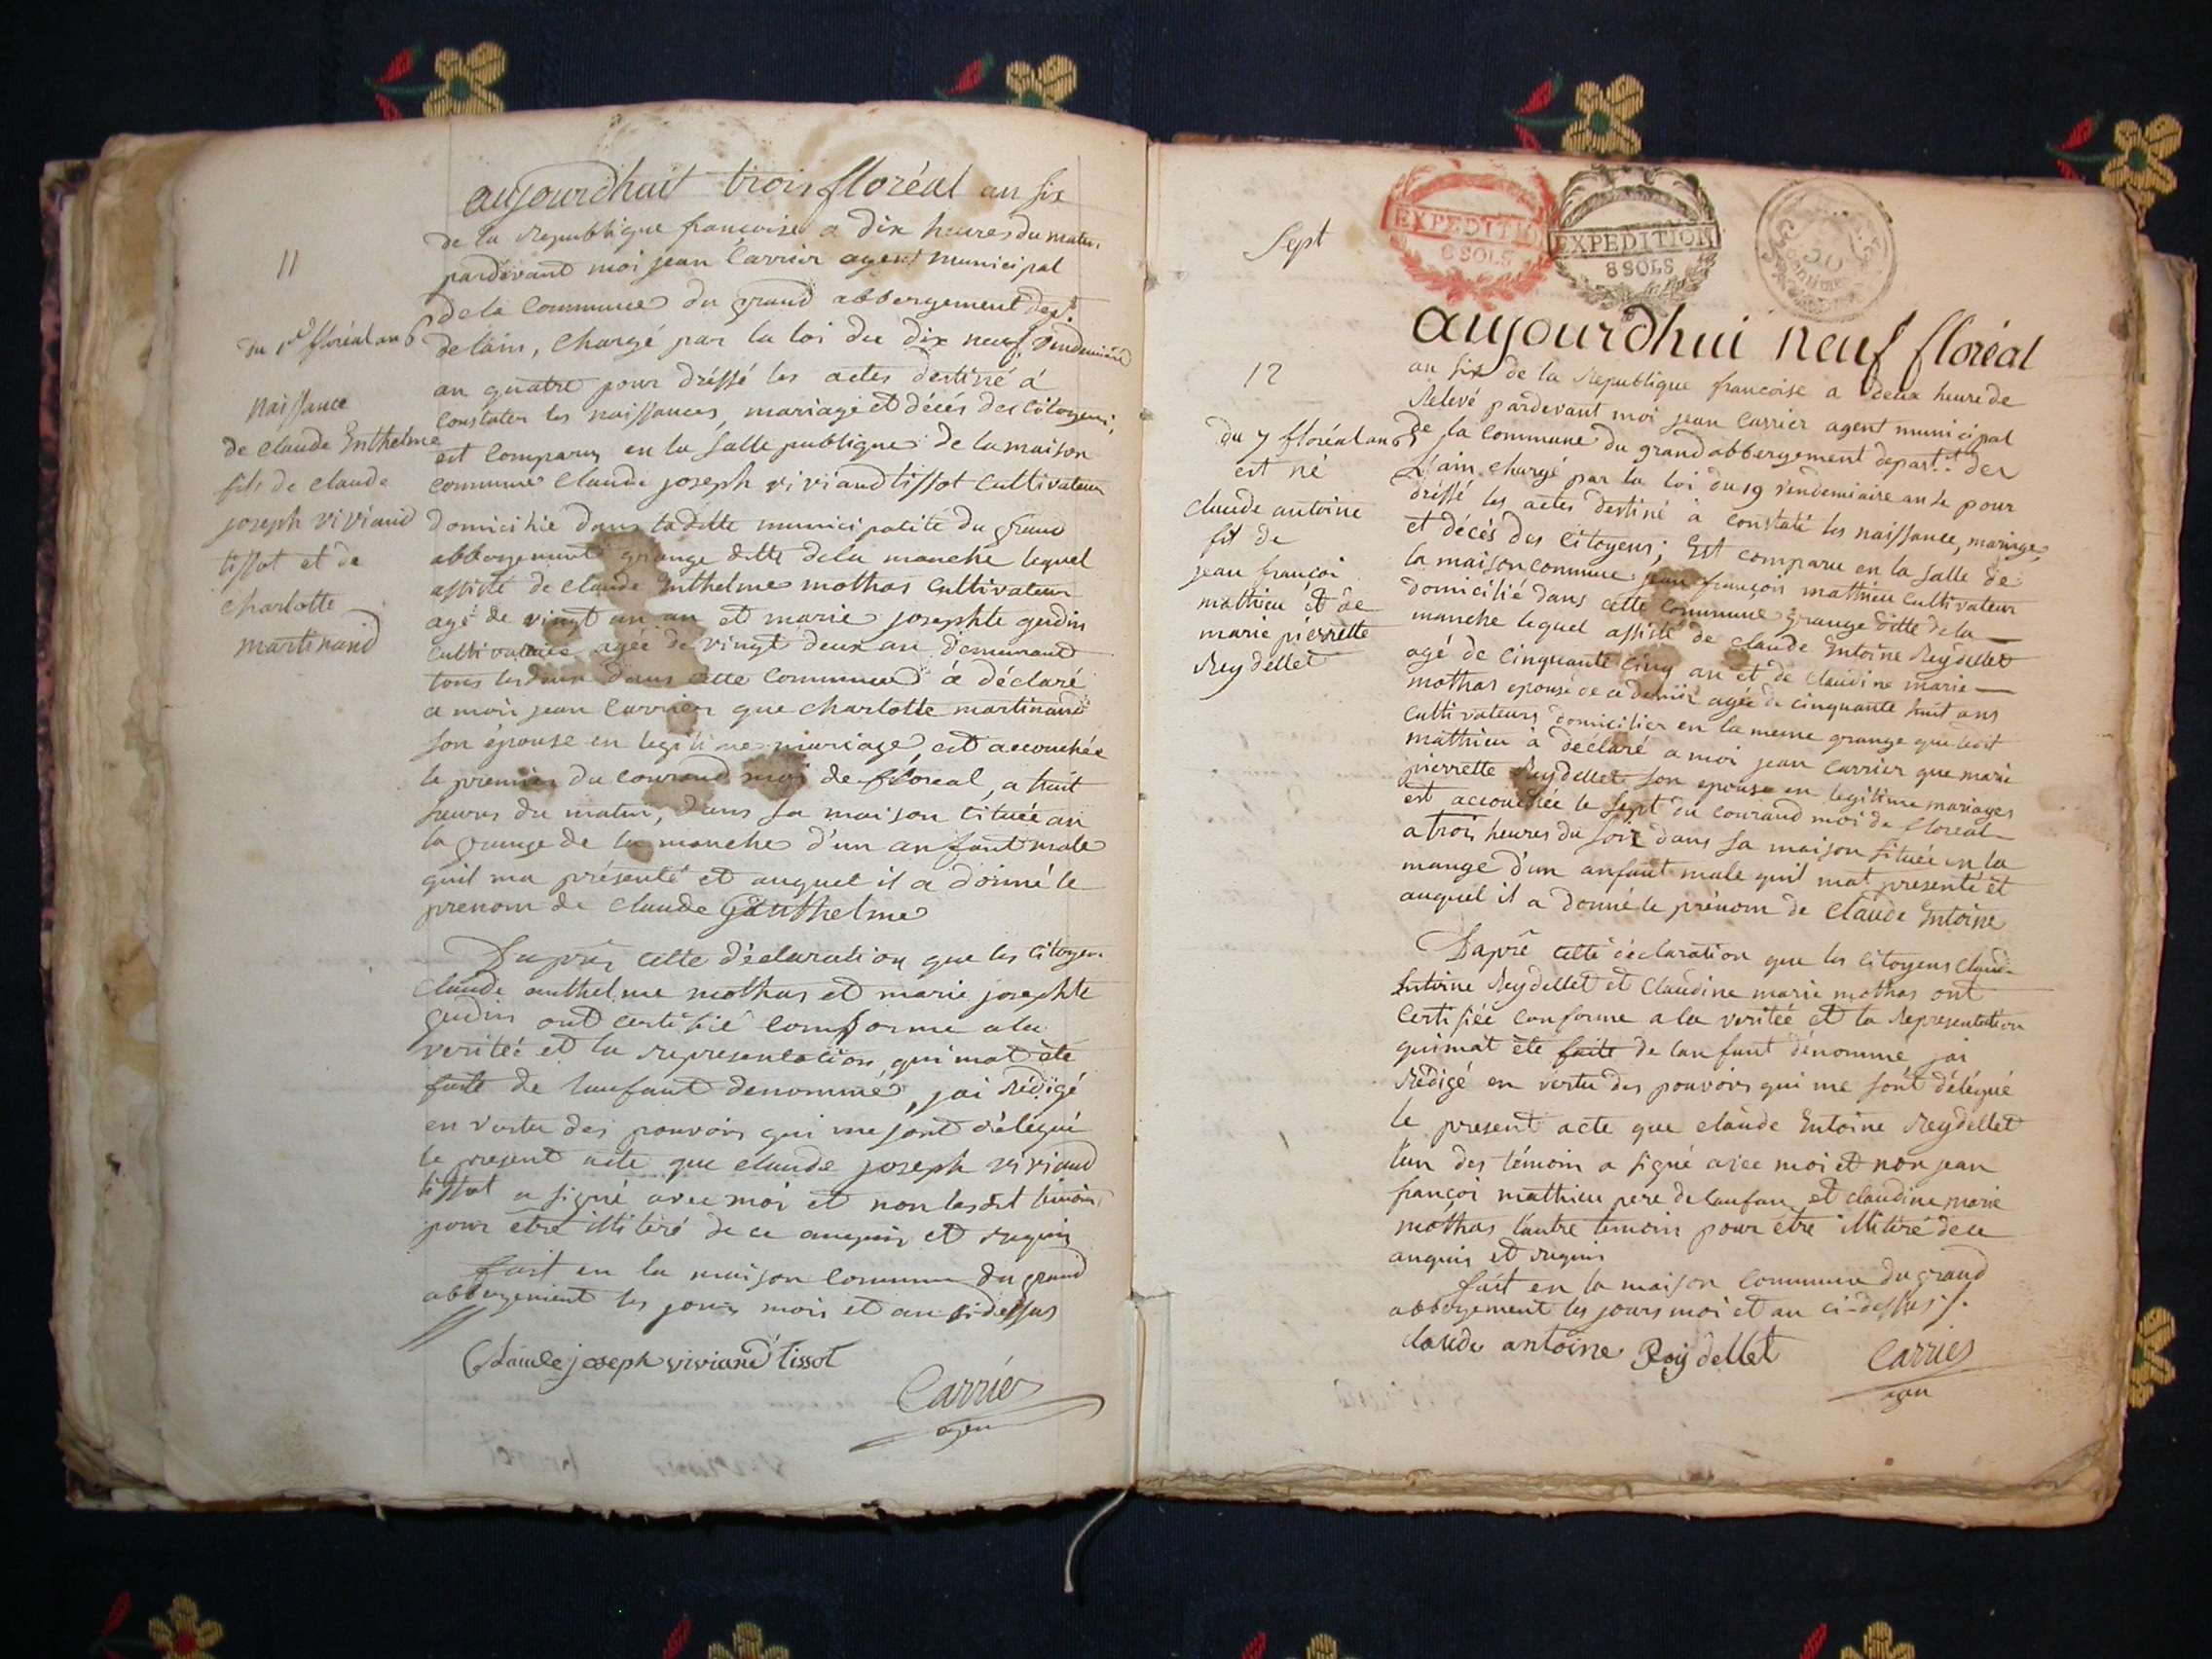 11
du 1er floréal an 6
naissance
de claude Enthelme
fils de claude
joseph viviand
tissot et de
charlotte
martinand
aujourdhuit trois floréal an six
de la Republique françoise a dix heures du matin
pardevant moi jean Carrier agent municipal
de la Commune du grand abbergement dept.
de lain, chargé par la loi du dix neuf vendemiaire
an quatre pour dréssé les actes destiné à
Constater les naissances, mariage et décés des Citoyens,
est comparu en la salle publique de la maison
commune claude joseph viviand tissot Cultivateur
domicilié dans laditte municipalité du grand
abbergement grange ditte dela manche lequel
assisté de claude Enthelme mothas Cultivateur
agé de vingt un an et marie josephte gudin
Cultivatrice agée de vingt deux an demeurant
tous les deux dans cette Commune à déclaré
a moi jean Carrier que charlotte martinand
son épouse en legitime mariage, est accouchée
le premier du courand moi de floreal, a huit
heures du matin, dans sa maison située an
la grange de la manche d'un anfant male
quil ma présenté et auquel il a donné le
prenom de claude Enthelme
Daprés cette déclaration que les Citoyen
claude anthelme mothas et marie josephte
gudin ont certifié comforme a la
veritée et la representation, qui mat été
faite de lanfant denommé, jai rédigé
en vertu des pouvoirs qui me sont délégué
le present acte que claude joseph viviand
tissot a signé avec moi et non lesdit temoins
pour être illitéré de ce anquis et requis
fait en la maison Commune du grand
abbergement les jours mois et an ci dessus
Claude joseph viviand tissot
Carrier
agen
Sept
EXPEDITION
6 SOLS
EXPEDITION
8 SOLS
50
centimes
12
du 7 floréal an 6
est né
claude antoine
fil de
jean françoi
mathieu et de
marie pierrette
Reydellet
aujourdhui neuf floréal
an six de la Republique francoise a deux heure de
Relevé pardevant moi jean Carrier agent municipal
de la Commune du grand abbergement depart.t de
L'ain chargé par la loi du 19 vendemiaire an 4e pour
dréssé les actes destiné à constaté les naissance, mariage,
et décés des Citoyens; Est comparu en la salle de
la maison commune jean françois mathieu Cultivateur
domicilié dans cette Commune grange ditte dela
manche lequel assisté de claude Entoine Reydellet
agé de cinquante cinq an et de claudine marie
mothas epouse de ce dernier agée de cinquante huit ans
Cultivateurs domicilier en la meme grange que ledit
mathieu à déclaré a moi jean Carrier que marie
pierrette Reydellet son epouse en legitime mariages
est accouchée le sept du courand moi de floreal
a trois heures du soir dans sa maison située en la
mange d'un anfant male quil mat presenté et
auquel il a donné le prénom de Claude Entoine
Daprê cette déclaration que les Citoyens claude
Entoine Reydellet et Claudine marie mothas ont
Certifiée conforme a la veritée et la Representation
quimat été faite de lanfant dénommé jai
Rédigé en vertu des pouvoirs qui me sont délégué
le present acte que claude Entoine Reydellet
lun des témoin a signé avec moi et non jean
françoi mathieu pere de lanfan et claudine marie
mothas lautre temoin pour etre illitéré de ce
anquis et requis
fait en la maison Commune du grand
abbergement les jours moi et an ci-dessus ./.
claude antoine Reydellet
Carrier
agen